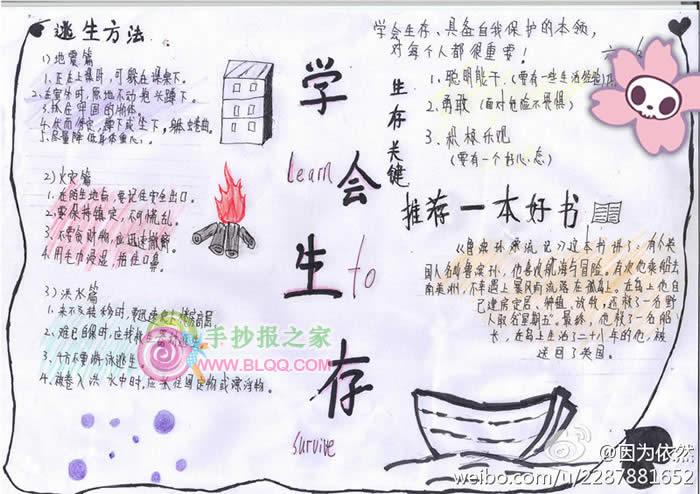 逃生方法
1)地震篇
1.正在上课时,可躲在课桌下。
2.在室外时,原地不动抱头蹲下。
3.躲在牢固的物体。
5.尽量降低身体重心。
2)火灾篇
1.在陌生地方,要记住安全出口。
2.要保持镇定,不可慌乱。
3.不要贪财物,应迅速撤离。
4.用毛巾浸湿,捂住口鼻。
3)洪水篇
1.来不及转移时,要迅速爬上楼房高层
2.难已自保时,应找救生
3.千万不要游泳逃生
4.被卷入洪水中时,应抓住固定物或漂浮物。
学
learn
会
生
to
存
survive
学会生存、具备自我保护的本领,
对每个人都很重要!
生存关键
1.聪明能干(要有一些生活经验)
2.勇敢(面对危险不畏惧)
3.积极乐观
(要有一个好心态)
推荐一本好书
《鲁滨孙漂流记》这本书讲了:有个英
国人名叫鲁滨孙,他喜欢航海与冒险。有次他乘船去
南美洲,不幸遇上暴风雨流落在孤岛上。在岛上他自
己建房定居、种植、放牧,还救了一名野
人取名"星期五"。最终,他救了一名船
长,在岛上生活了二十八年的他,被
送回了英国。
手抄报之家
WWW.BLQQ.COM
@因为依然
weibo.com/u/2287881652